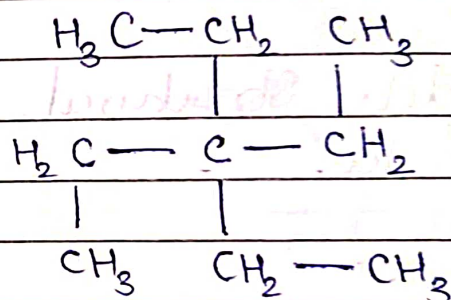 H₃C — CH₂ CH₃
H₂C — C — CH₂
CH₃ CH₂ — CH₃